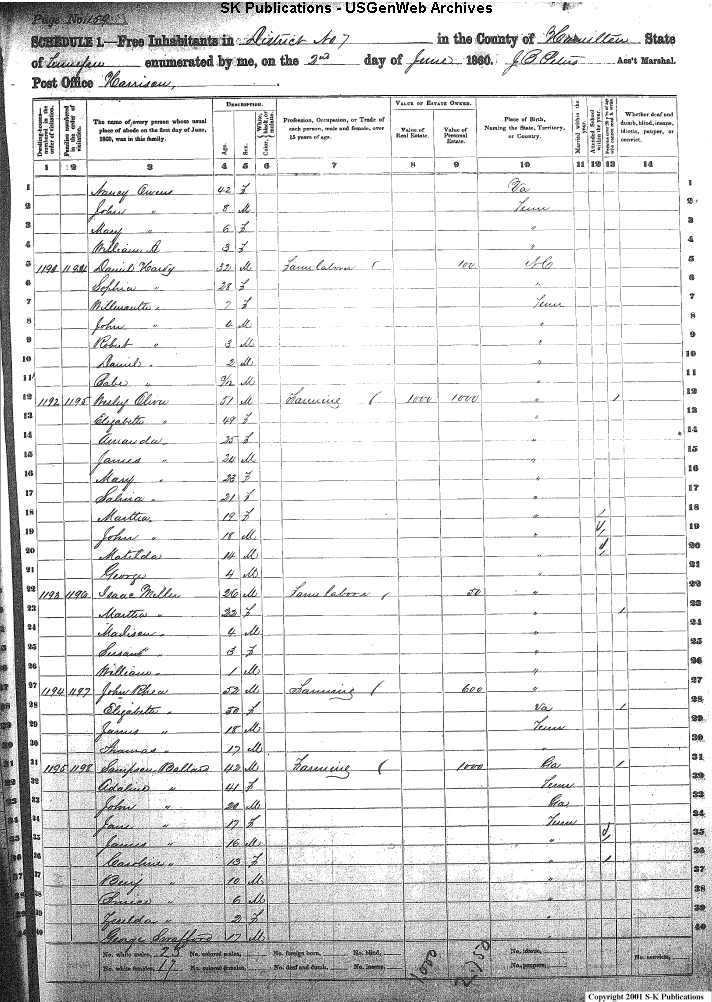 SK Publications - USGenWeb Archives
Page No. 159
SCHEDULE 1.—Free Inhabitants in District No 7 in the County of Hamilton State
of Tennessee enumerated by me, on the 2nd day of June 1860. Ass't Marshal.
Post Office Harrison,
Dwelling-houses—numbered in the order of visitation.
Families numbered in the order of visitation.
The name of every person whose usual place of abode on the first day of June, 1860, was in this family.
DESCRIPTION.
Age.
Sex.
Color, White, black, or mulatto.
Profession, Occupation, or Trade of each person, male and female, over 15 years of age.
VALUE OF ESTATE OWNED.
Value of Real Estate.
Value of Personal Estate.
Place of Birth, Naming the State, Territory, or Country.
Married within the year.
Attended School within the year.
Persons over 20 y'rs of age who cannot read & write.
Whether deaf and dumb, blind, insane, idiotic, pauper, or convict.
1 2 3 4 5 6 7 8 9 10 11 12 13 14
1 Nancy Owens 42 f Va 1
2 John " 8 M Tenn 2
3 Mary " 6 f " 3
4 William R 3 f " 4
5 1190 Daniel Hardy 32 M Farm labora 100 NC 5
6 Sophia " 28 f " 6
7 " 7 f Tenn 7
8 John " 4 M " 8
9 Robert " 3 M " 9
10 Daniel " 2 M " 10
11 Babe " 9/12 M " 11
12 1192 1195 Wesley 51 M Farming 1000 1000 " 1 12
13 Elizabeth " 49 f " 13
14 Amanda " 25 f " 14
15 James " 24 M " 15
16 Mary " 23 f " 16
17 Salina " 21 f " 17
18 Martha " 19 f " 18
19 John " 18 M " 19
20 Matilda " 14 M " 20
21 George 4 M " 21
22 1193 1196 Isaac Miller 26 M Farm labora 50 " 22
23 Martha " 22 f " 1 23
24 Madison " 4 M " 24
25 Susan " 3 f " 25
26 William " 1 M " 26
27 1194 1197 John Rhea 52 M Farming 600 " 27
28 Elizabeth " 50 f Va 1 28
29 James " 18 M Tenn 29
30 Thomas " 17 M " 30
31 1195 1198 Sampson Ballard 42 M Farming 1000 Ga 1 31
32 Adaline " 41 f Tenn 32
33 John " 20 M Ga 33
34 Jane " 17 f Tenn 34
35 James " 16 M " 35
36 Caroline " 13 f " 1 36
37 Benj " 10 M 37
38 " 6 M 38
39 " 2 f 39
40 George Swafford 17 M 40
No. white males, 23 No. colored males, No. foreign born, No. blind,
No. white females, 17 No. colored females, No. deaf and dumb, No. insane,
No. idiotic,
No. paupers,
No. convicts,
Copyright 2001 S-K Publications